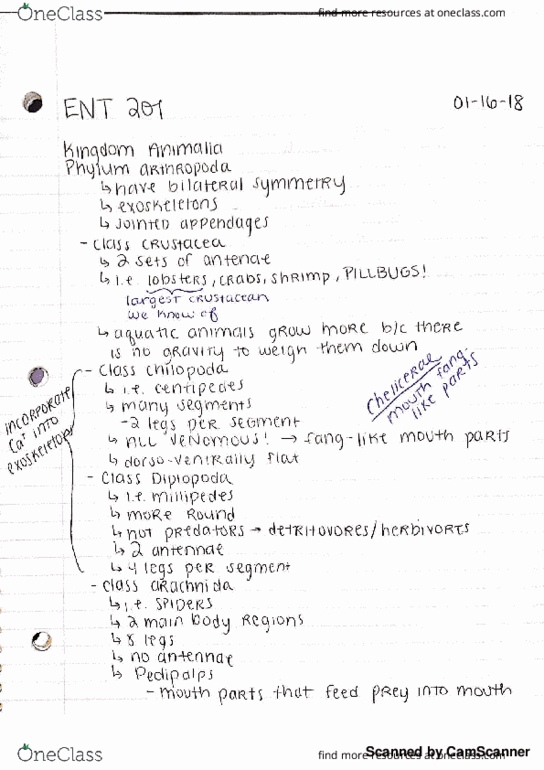 OneClass
find more resources at oneclass.com
ENT 201
01-16-18
Kingdom Animalia
Phylum Arthropoda
↳ have bilateral symmetry
↳ exoskeletons
↳ jointed appendages
- Class Crustacea
↳ 2 sets of antenae
↳ i.e. lobsters, crabs, shrimp, PILLBUGS!
largest crustacean
we know of
↳ aquatic animals grow more b/c there
is no gravity to weigh them down
- Class Chilopoda
↳ i.e. centipedes
↳ many segments
-2 legs per segment
↳ ALL VENOMOUS! → fang-like mouth parts
↳ dorso-ventrally flat
Chelicerae
mouth fang-
like parts
INCORPORATE
Ca⁺ INTO
exoskeleton
- Class Diplopoda
↳ i.e. millipedes
↳ more round
↳ not predators → detritovores/herbivores
↳ 2 antennae
↳ 4 legs per segment
- Class Arachnida
↳ i.e. SPIDERS
↳ 2 main body regions
↳ 8 legs
↳ no antennae
↳ Pedipalps
- mouth parts that feed prey into mouth
OneClass
find more resources at oneclass.com
Scanned by CamScanner